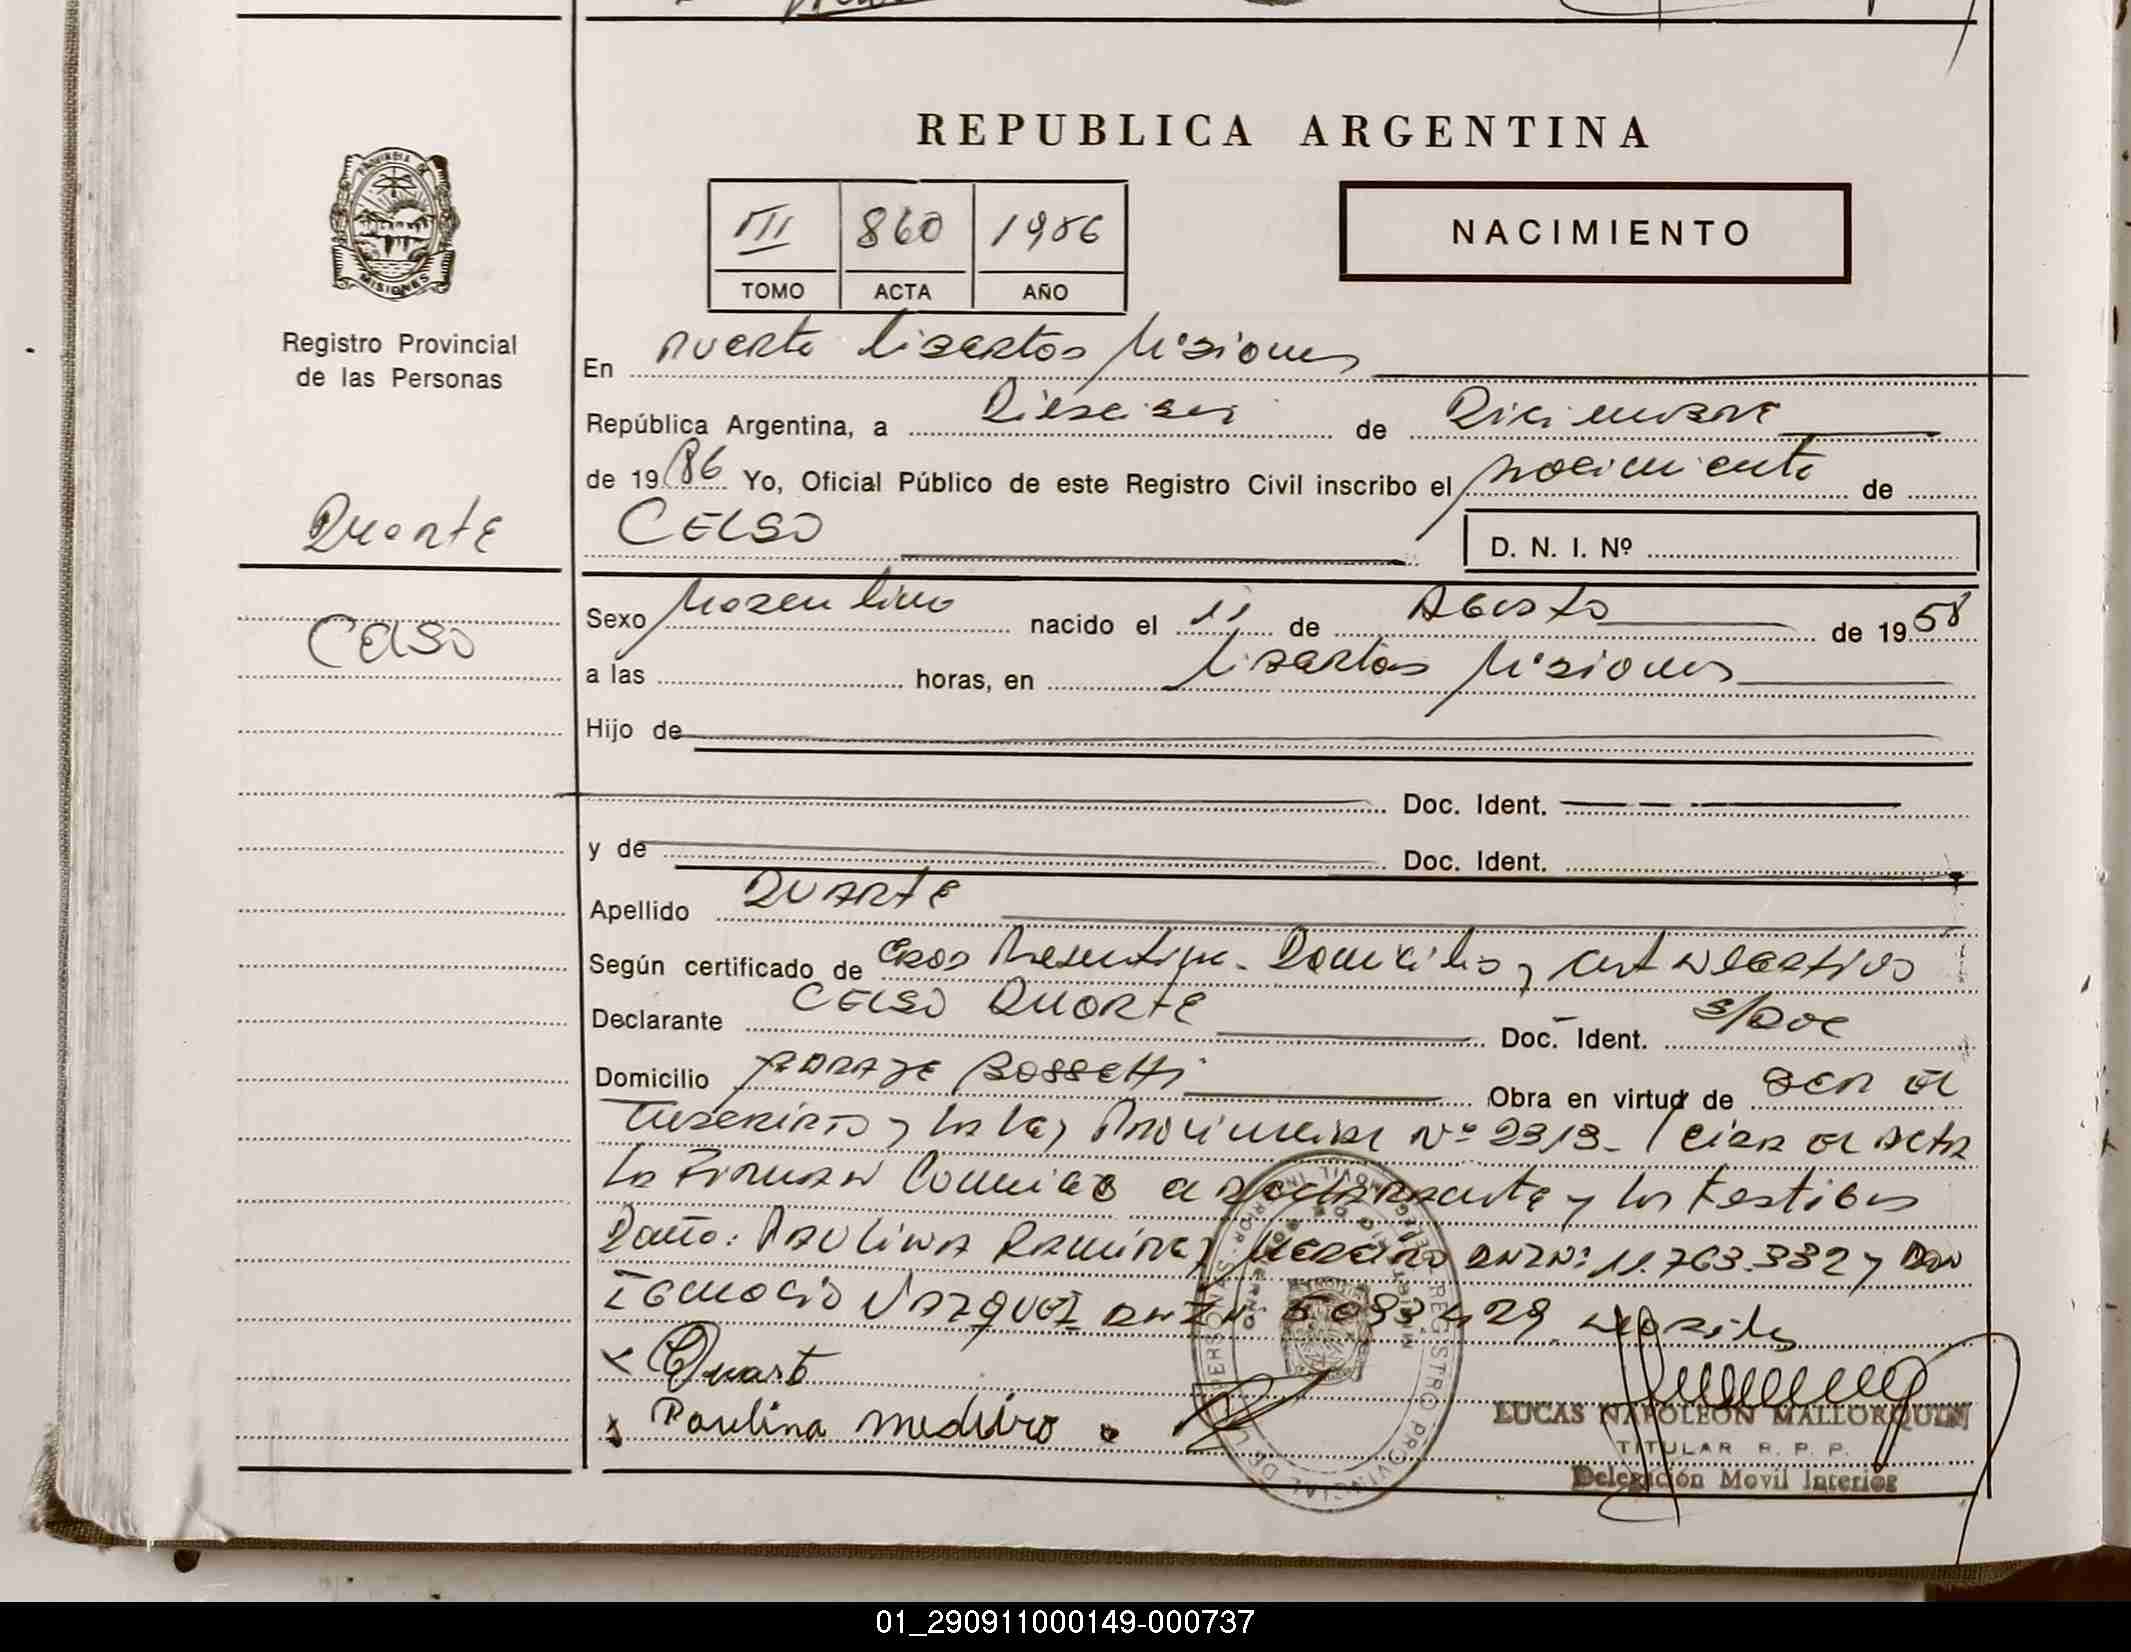 REPUBLICA ARGENTINA
III 860 1986
TOMO ACTA AÑO
NACIMIENTO
PROVINCIA DE
MISIONES
Registro Provincial
de las Personas
Duarte
Celso
En Puerto Libertad Misiones
República Argentina, a Dieciseis de Diciembre
de 1986 Yo, Oficial Público de este Registro Civil inscribo el nacimiento de
CELSO D. N. I. Nº
Sexo Masculino nacido el 11 de Agosto de 1958
a las horas, en Libertad Misiones
Hijo de
Doc. Ident.
y de Doc. Ident.
Apellido DUARTE
Según certificado de Domicilio y cert negativo
Declarante CELSO DUARTE Doc. Ident. S/Doc
Domicilio PARAJE BOSSETTI Obra en virtud de ser el
inscripto y la Ley Provincial Nº 2313- Leida el Acta
la Firman Conmigo el declarante y los testigos
Doña: PAULINA RAMIREZ DNI Nº: 11.763.332 y Don
Ignacio VAZQUEZ DNI Nº
Duart
Paulina
LUCAS NAPOLEON MALLORQUIN
TITULAR R. P. P.
Delegación Movil Interior
REGISTRO PROVINCIAL DE LAS PERSONAS
01_290911000149-000737